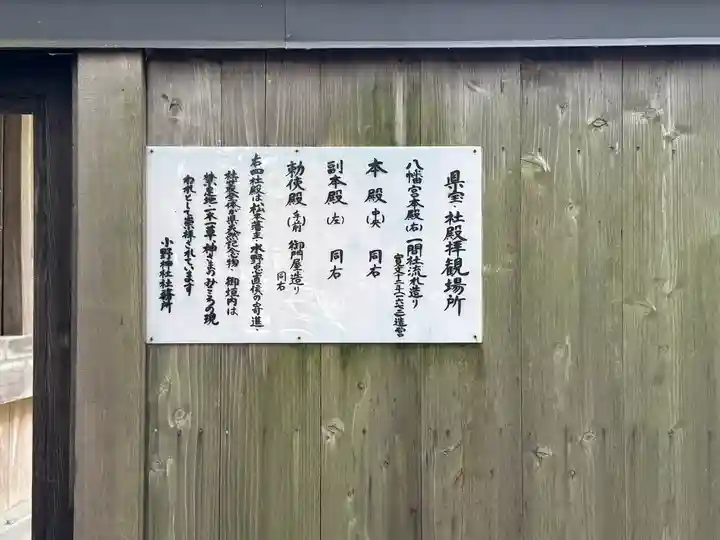 県宝 社殿拝観場所
八幡宮本殿(右) 一間社流れ造り
寛文十二年(一六七二)造営
本殿(中央) 同右
副本殿(左) 同右
勅使殿(手前) 御門屋造り
同右
右四社殿は松本藩主、水野忠直侯の寄進、
社叢全体が県天然記念物、御垣内は
禁足地一木一草、神さまのみこころの現
われとして崇拝されています
小野神社社務所